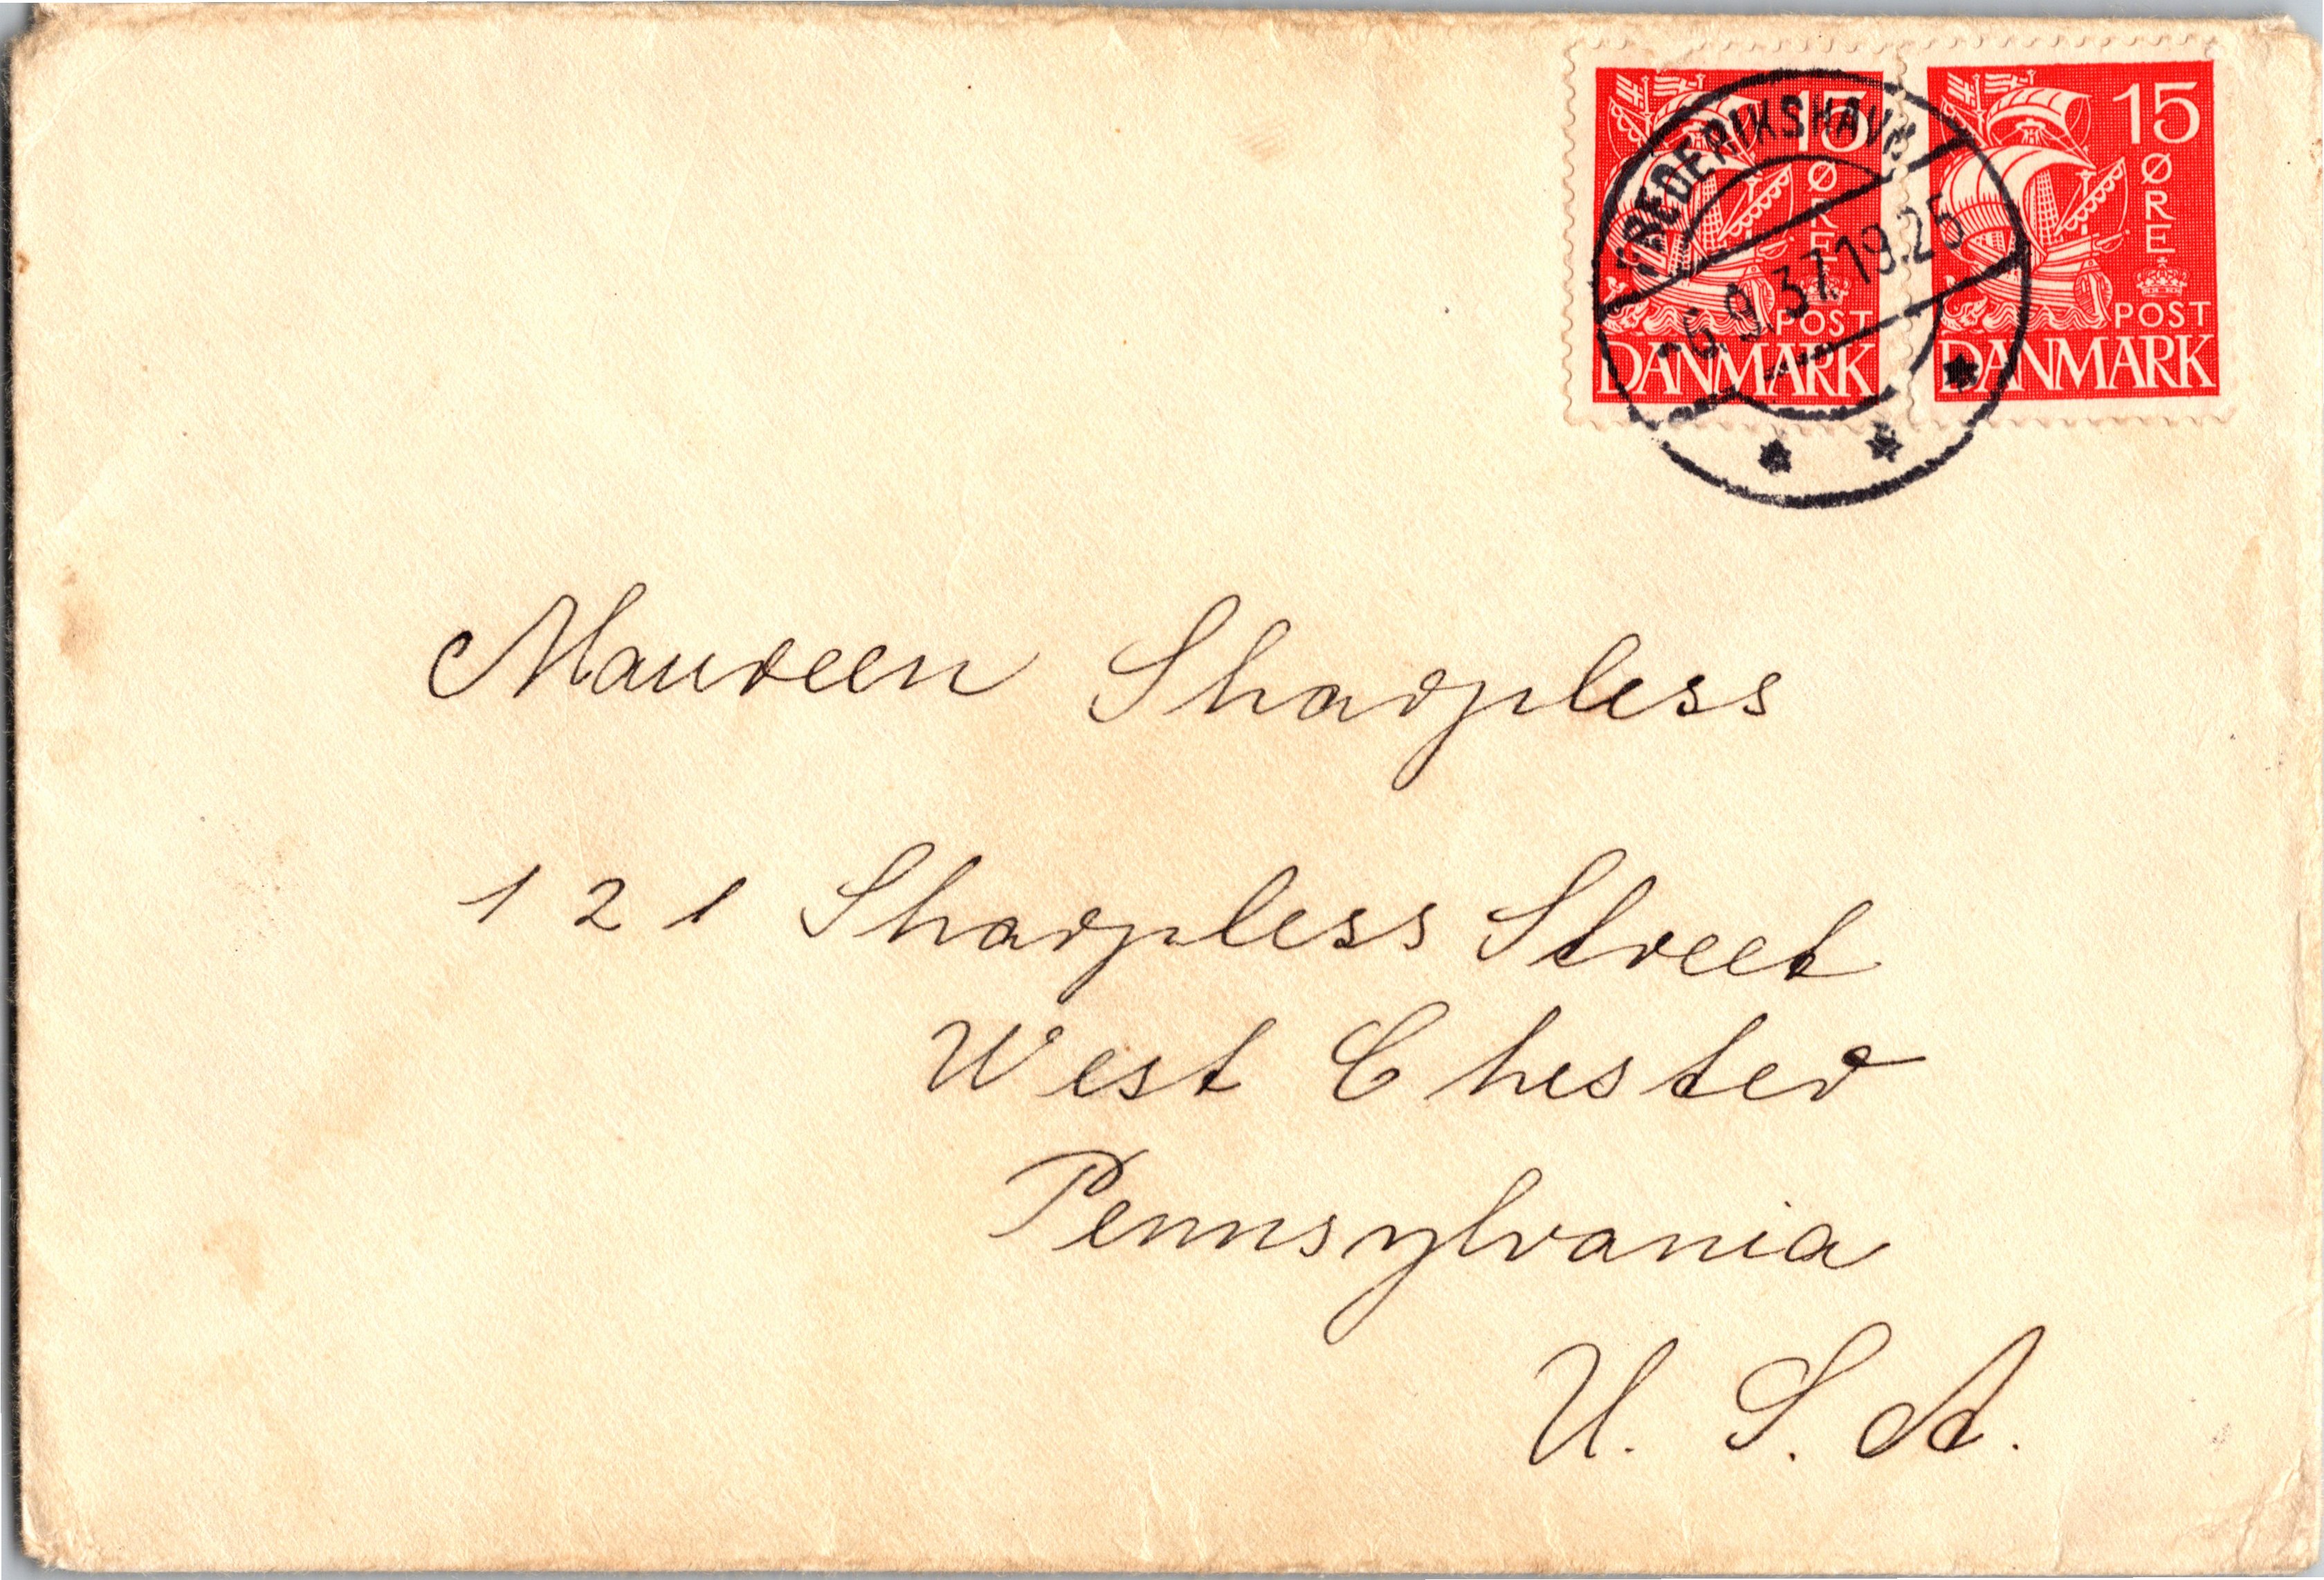 15
ØRE
POST
DANMARK
15
ØRE
POST
DANMARK
FREDERIKSHAVN
-6.9.37.19.25
Maureen Sharpless
121 Sharpless Street
West Chester
Pennsylvania
U. S. A.